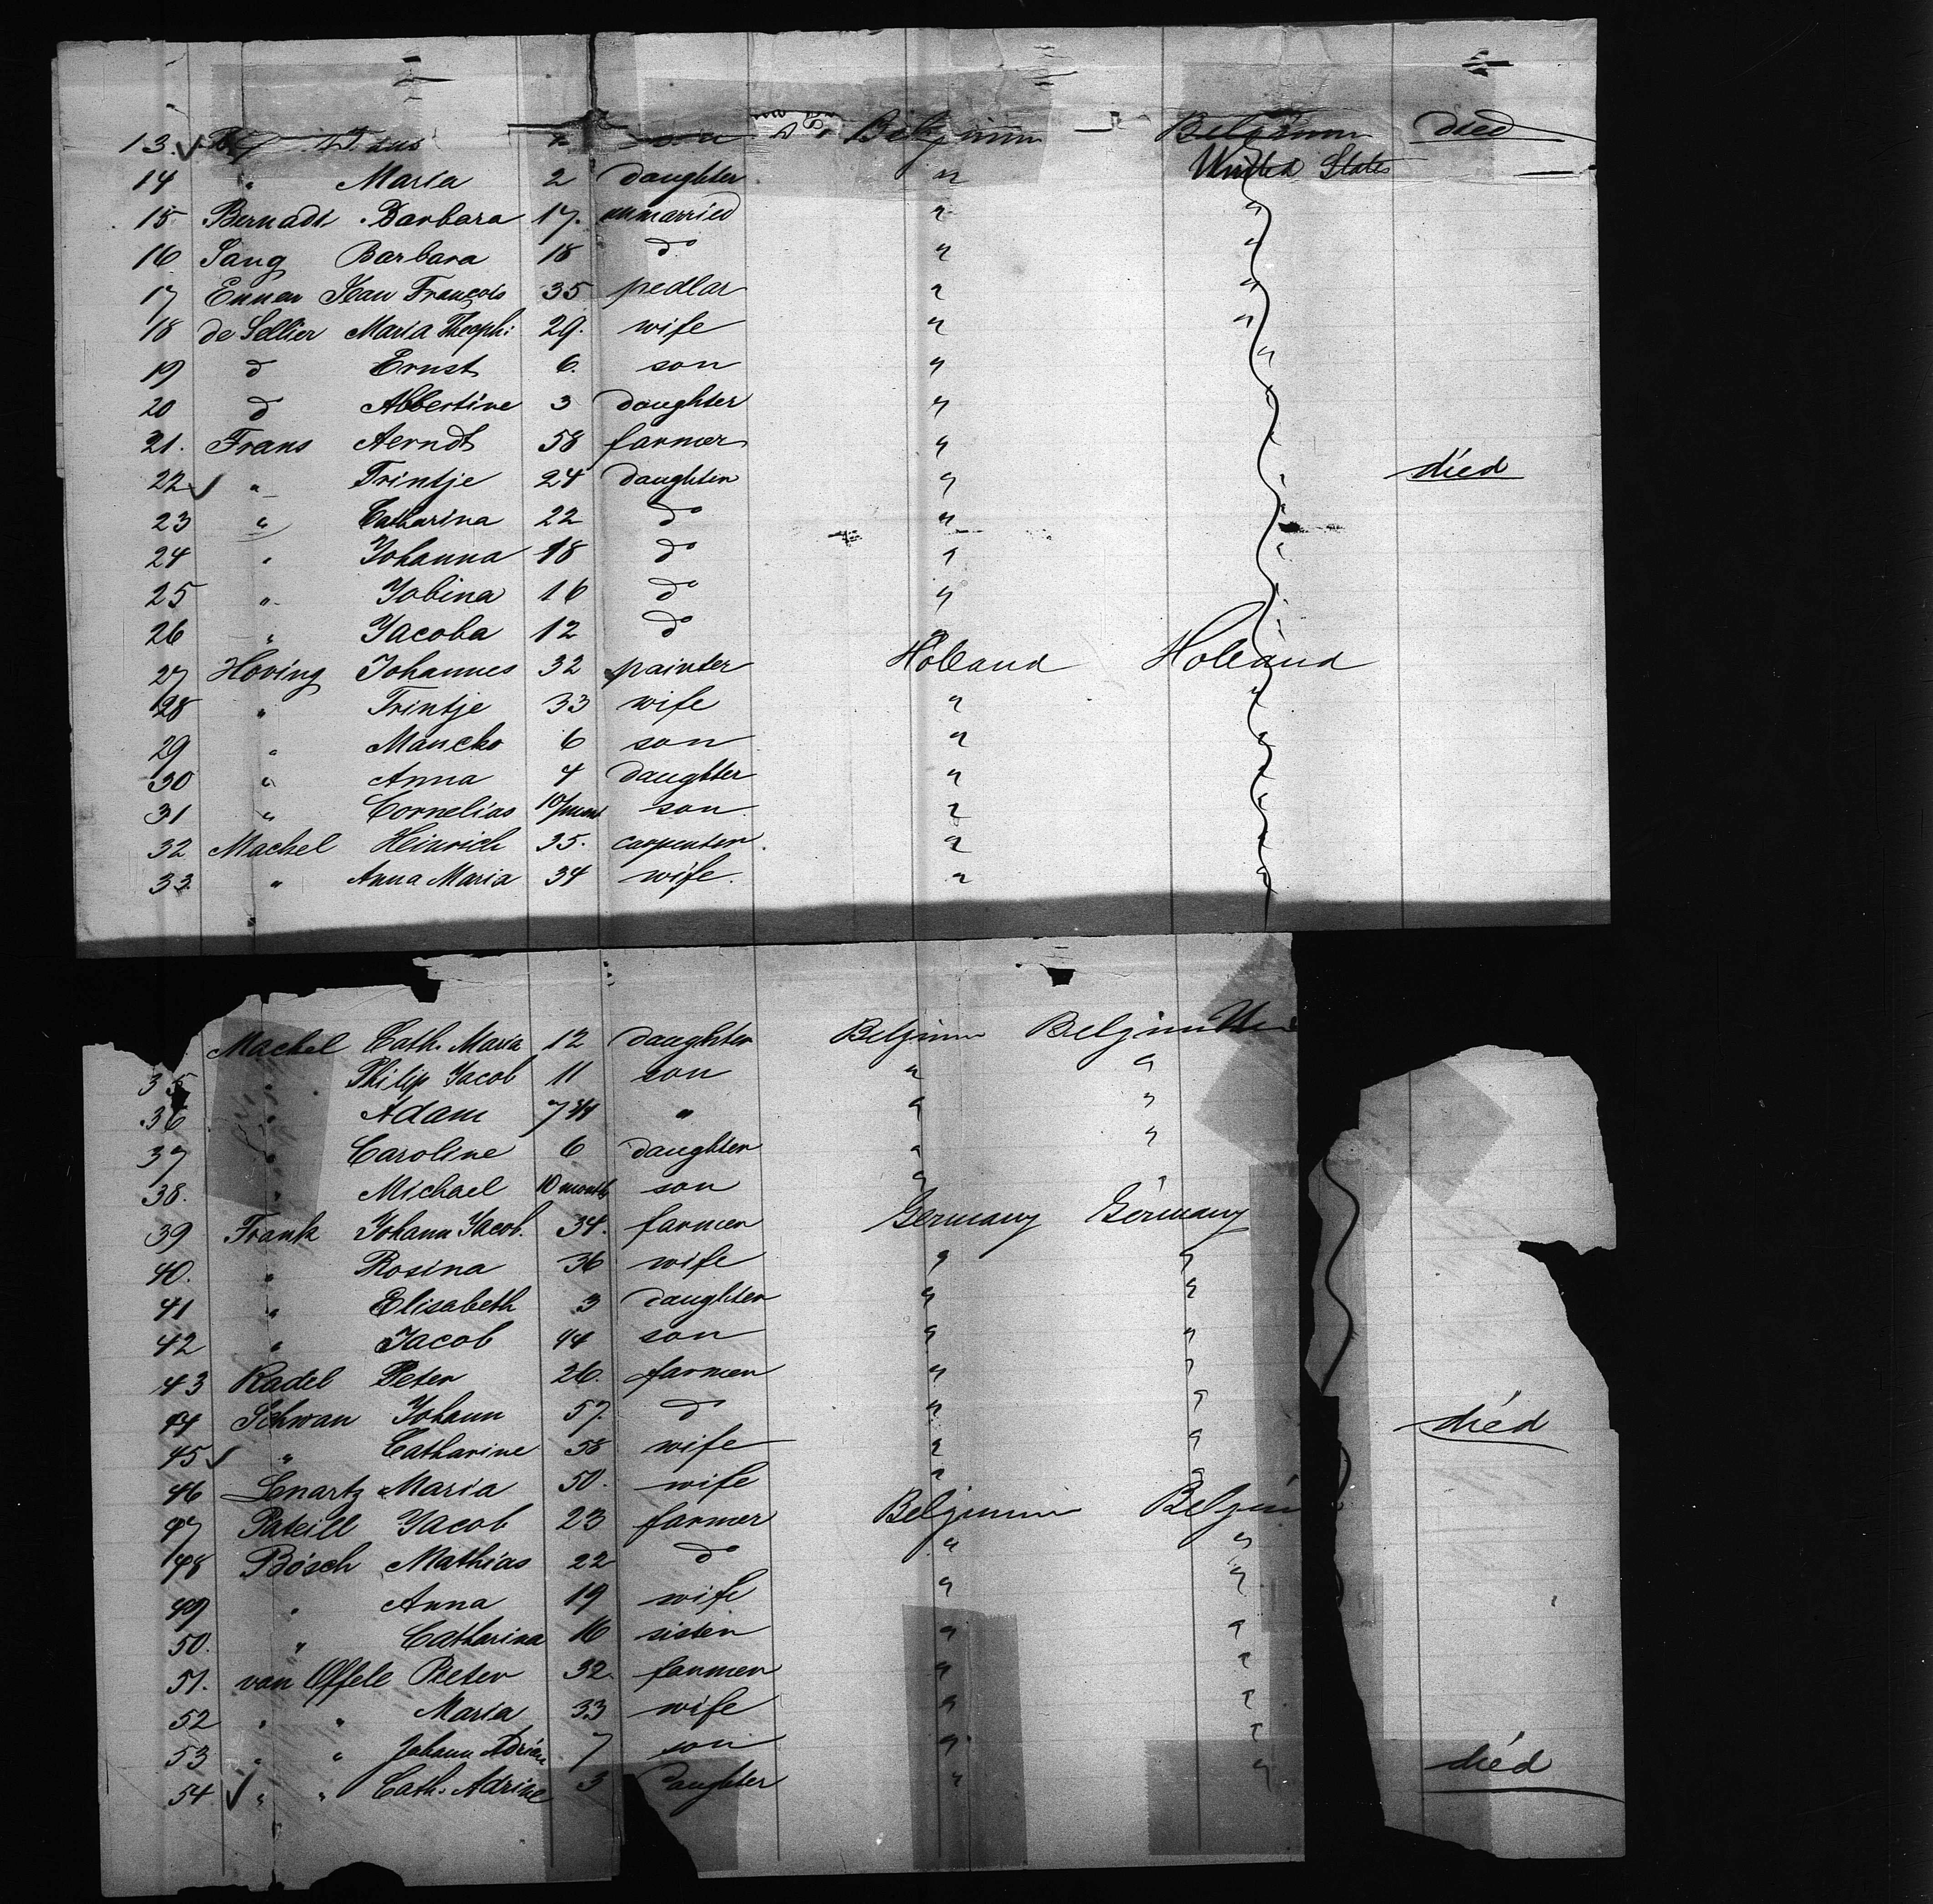 13. son Belgium Belgium died
14 " Maria 2 daughter " United States
15 Bernadt Barbara 17. unmarried " "
16 Sang Barbara 18 do " "
17 Ennen Jean François 35 pedlar " "
18 de Sellier Maria Theoph: 29. wife " "
19 d Ernst 6. son " "
20 d Albertine 3 daughter " "
21. Frans Aerndt 58 farmer " "
22 " Trintje 24 daughter " " died
23 " Catharina 22 do " "
24 " Johanna 18 do " "
25 " Jobina 16 do " "
26 " Jacoba 12 do " "
27 Hoving Johannes 32 painter Holland Holland
28 " Trintje 33 wife " "
29 " Mancko 6 son " "
30 " Anna 4 daughter " "
31 " Cornelias 10/ son " "
32 Machel Heinrich 35. carpenter. " "
33. " Anna Maria 34 wife. " "
Machel Cath. Maria 12 daughter Belgium Belgium Un
35 " Philip Jacob 11 son " "
36 " Adam 7 3/4 " " "
37 " Caroline 6 daughter " "
38. " Michael 10 month son " "
39 Frank Johann Jacob. 34. farmer Germany Germany
40. " Rosina 36 wife " "
41 " Elisabeth 3 daughter " "
42 " Jacob son " "
43 Radel Peter 26. farmer " "
44 Schwan Johann 57. do " "
45 " Catharine 58 wife " " died
46 Lenartz Maria 50. wife " "
47 Pateill Jacob 23 farmer Belgium Belgiu
48 Bösch Mathias 22 do " "
49 " Anna 19 wife " "
50. " Catharina 16 sister " "
51. van Offele Pieter 32. farmer " "
52 " " Maria 33 wife " "
53 " " Johann Adrian 7 son " "
54 " " Cath. Adrine 3 daughter " " died